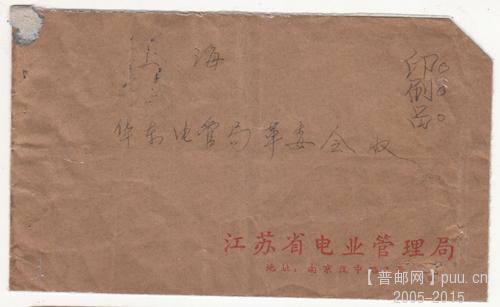 上海
印刷品
华东电管局革委会收
江苏省电业管理局
地址：南京汉中
【普邮网】puu.cn
2005-2015